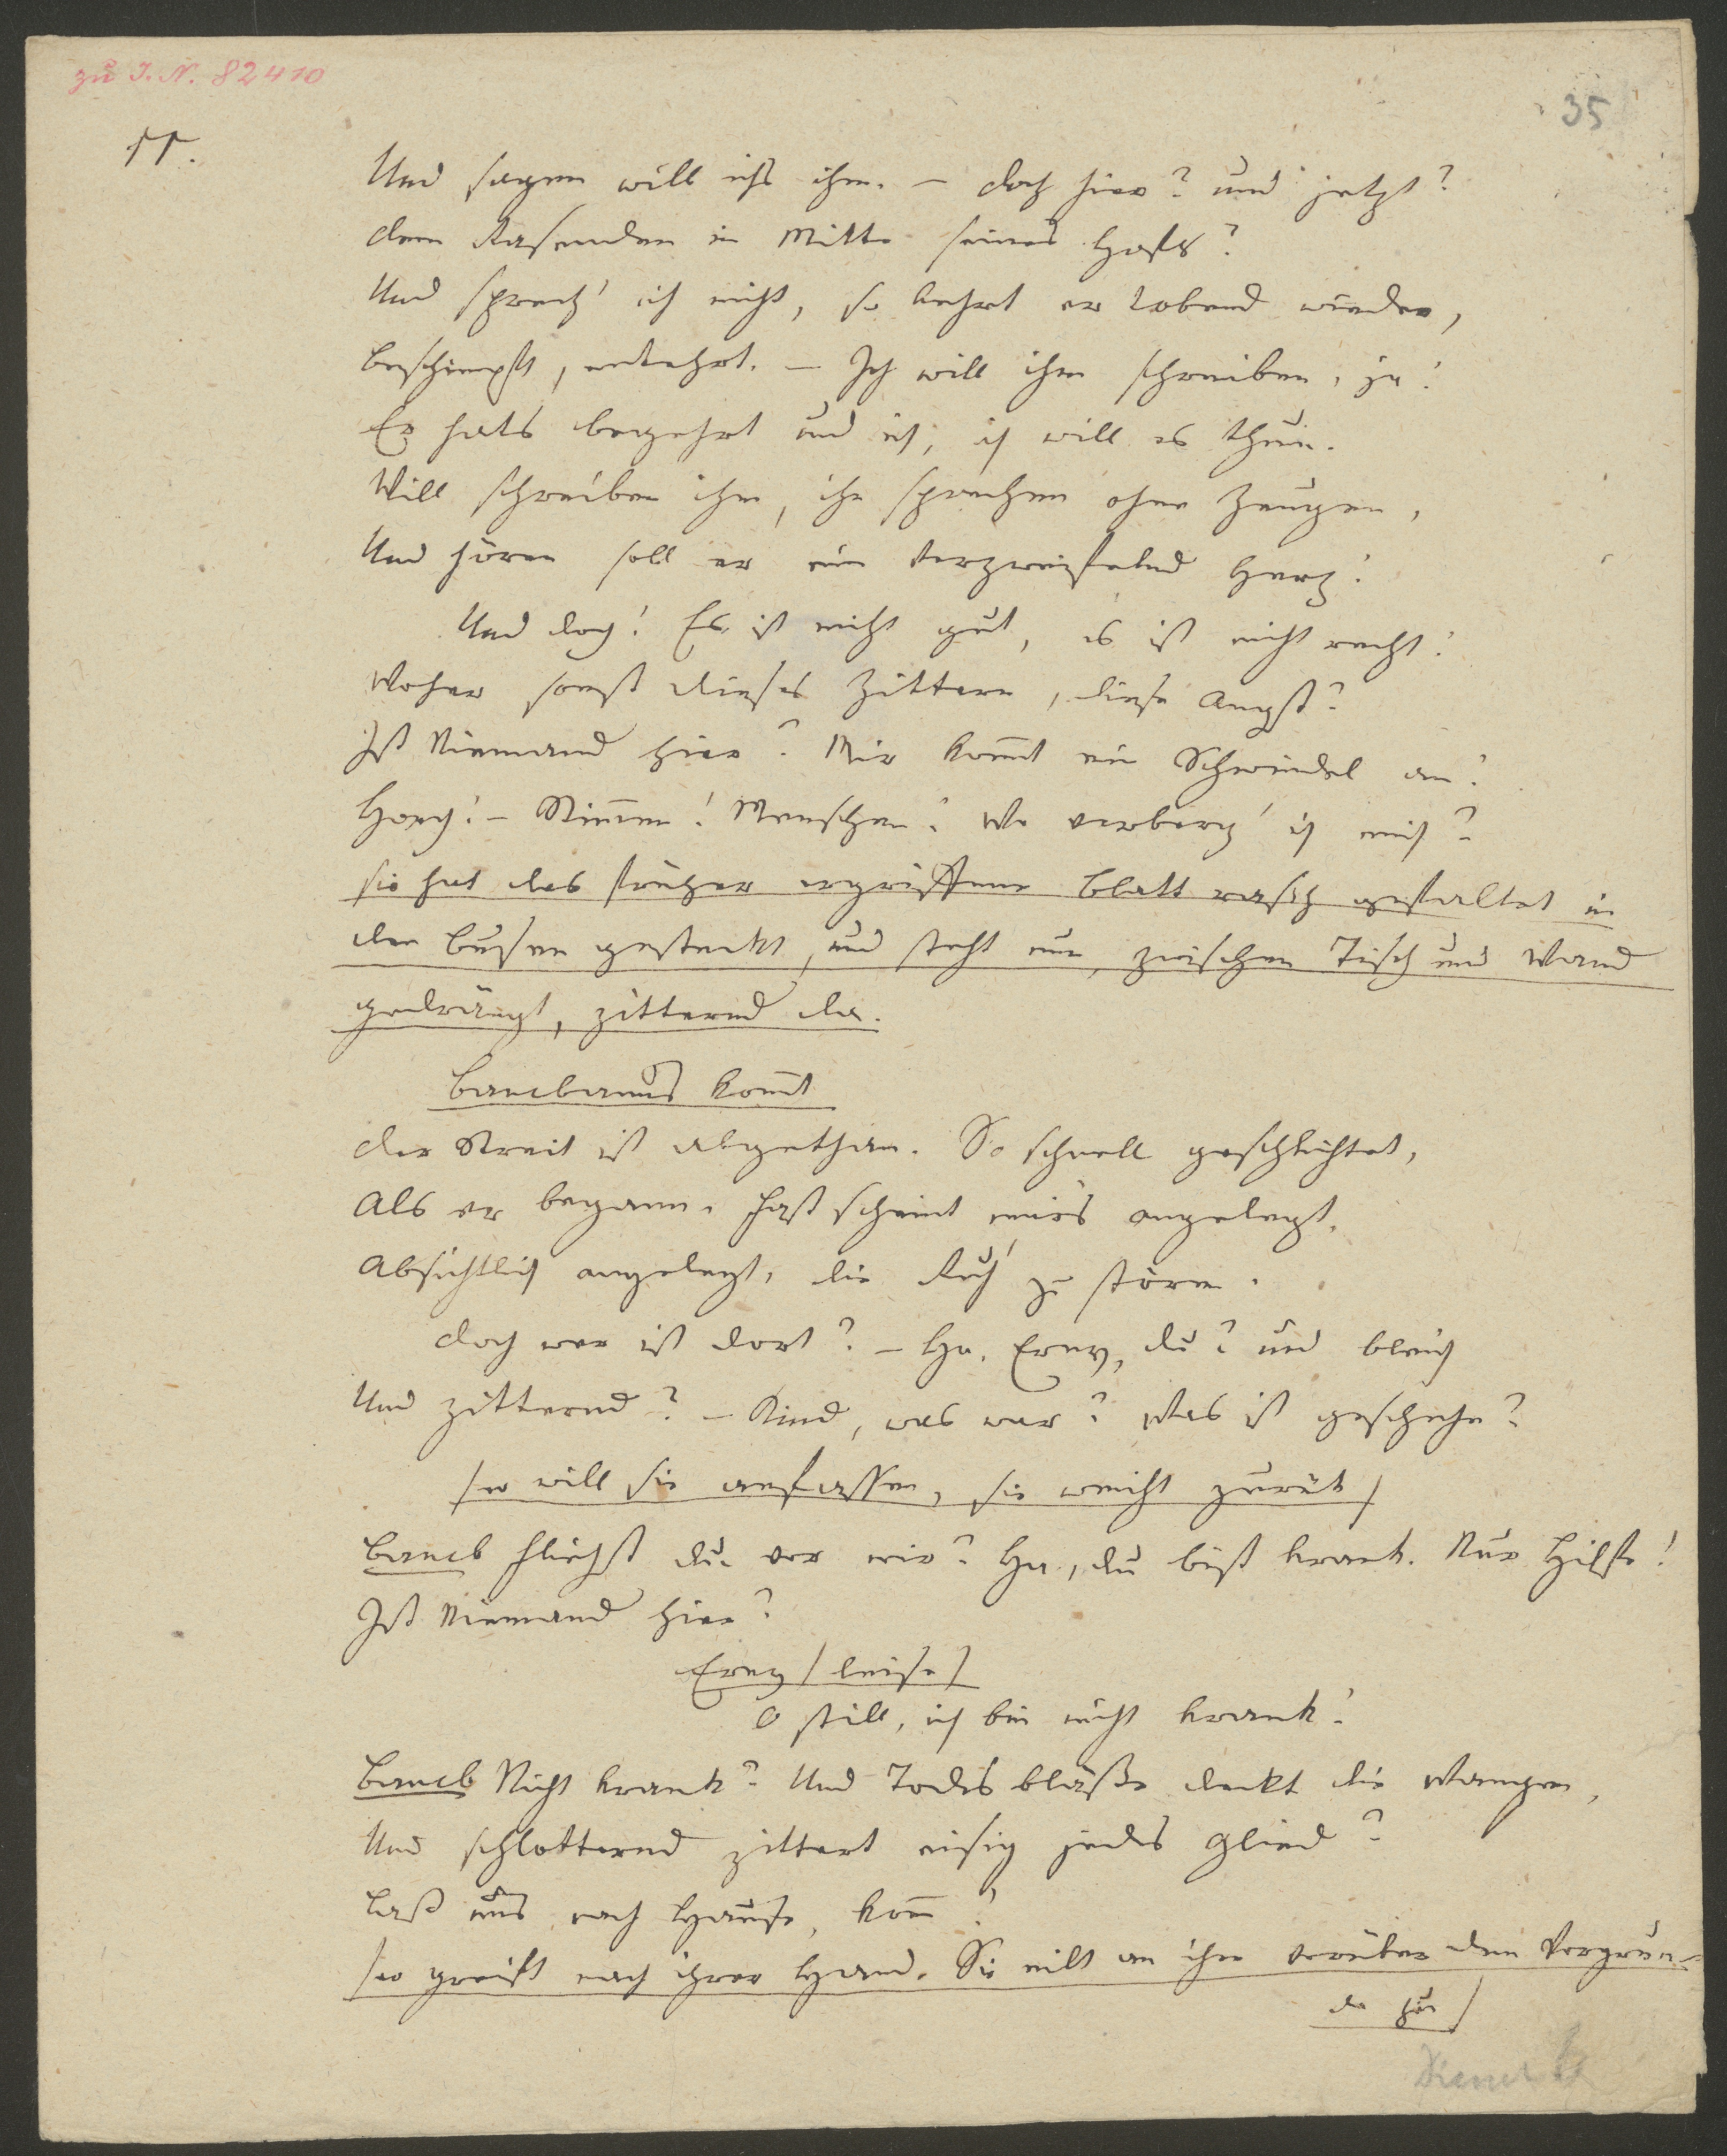 zu I. N. 82410
35
11.
Und sagen will ichs ihm. – doch hier? und jetzt?
dem Rasenden in Mitte seines Hofs?
Und sprech' ich nicht, so kehrt er tobend wieder,
beschimpft, entehrt. – Ich will ihm schreiben, ja!
Er hats begehrt und ich, ich will es thun.
Will schreiben ihm, ihn sprechen ohne Zeugen,
Und hören soll er ein verzweifelnd Herz!
Und doch! Es ist nicht gut, es ist nicht recht!
Woher sonst dieses Zittern, diese Angst?
Ist Niemand hier? Mir komt ein Schwindel an!
Horch! – Stimen! Menschen! Wo verberg' ich mich?
sie hat das früher ergriffene Blatt rasch gefaltet in
den Busen gesteckt, und steht nun, zwischen Tisch und Wand
gedrängt, zitternd da.
Bancbanus komt
der Streit ist abgethan. So schnell geschlichtet,
Als er begann. Fast scheint mirs angelegt,
Absichtlich angelegt, die Ruh' zu stören.
doch wer ist dort? – Ha, Erny, du? und bleich
Und zitternd? – Kind, was war? Was ist geschehn?
/er will sie anfassen, sie weicht zurük/
Bancb Fliehst du vor mir? Ha, du bist krank. Nur Hilfe!
Ist Niemand hier?
Erny /leise/
O still, ich bin nicht krank!
Bancb Nicht krank? Und Todesbläße dekt die Wangen,
Und schlotternd zittert eisig jedes Glied?
Laß uns nach Hause, kom!
/er greift nach ihrer Hand. Sie eilt an ihm vorüber dem Vorgrun-
de zu/